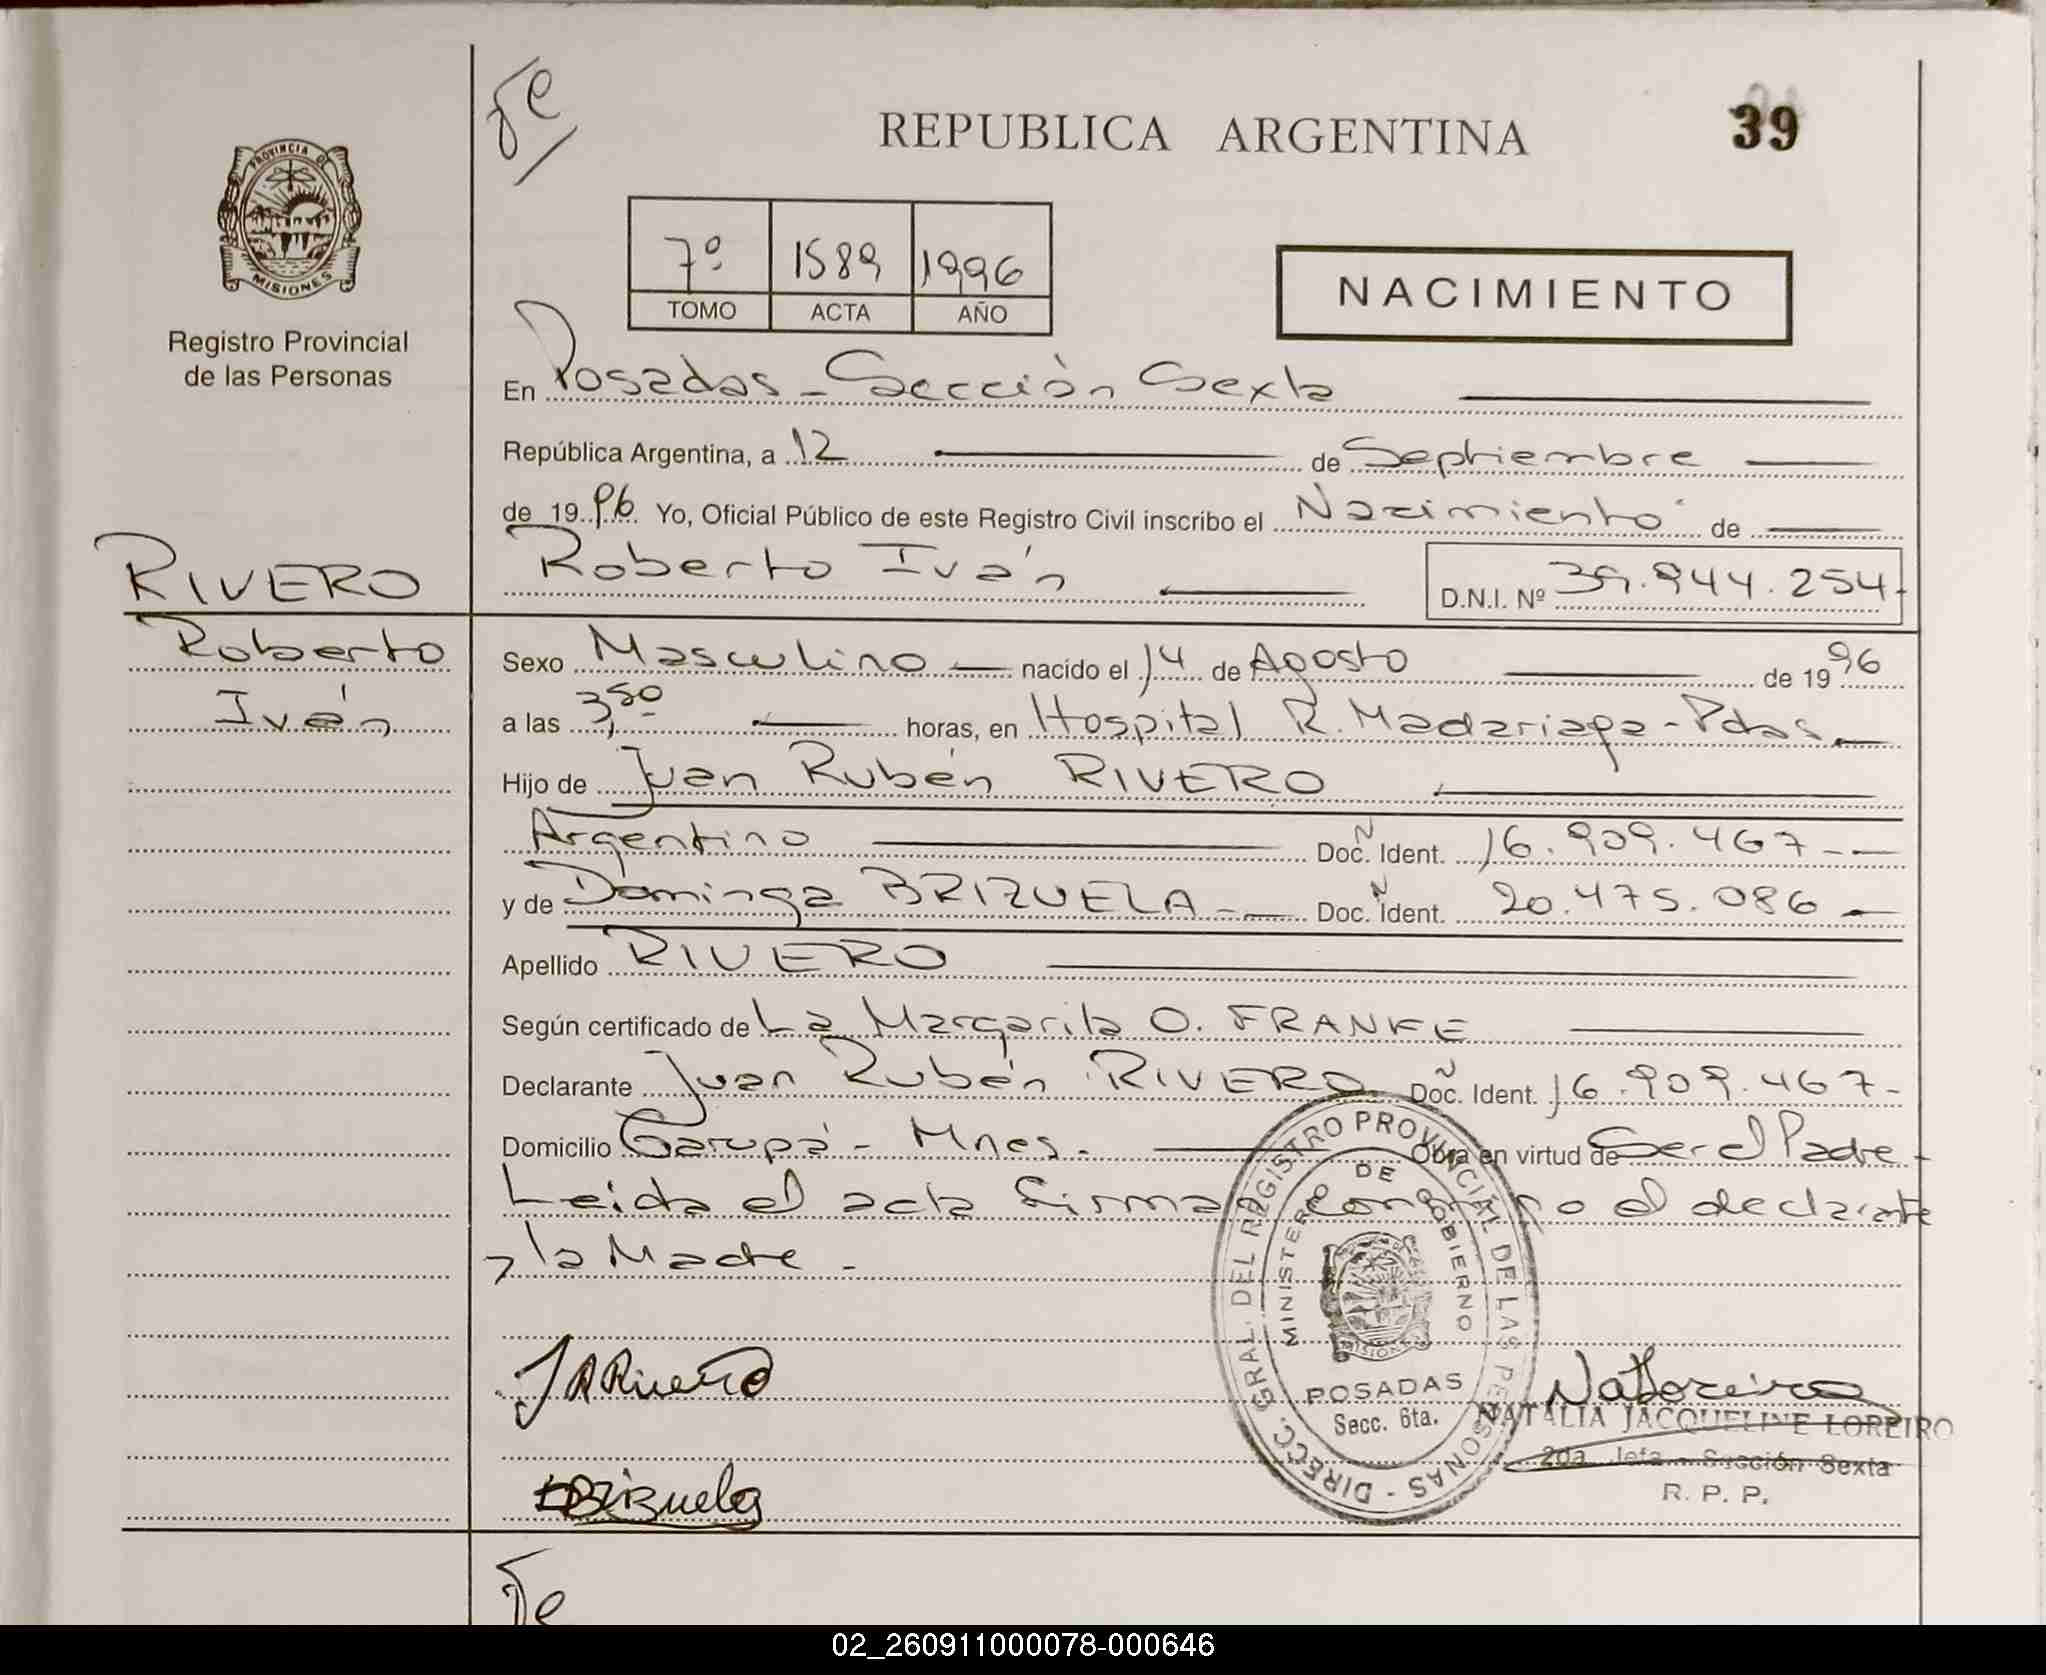 REPUBLICA ARGENTINA
39
PROVINCIA DE
MISIONES
Registro Provincial
de las Personas
7º 1589 1996
TOMO ACTA AÑO
NACIMIENTO
En Posadas - Sección Sexta
República Argentina, a 12 de Septiembre
de 1996 Yo, Oficial Público de este Registro Civil inscribo el Nacimiento de
RIVERO
Roberto Iván
Roberto Iván D.N.I. Nº 39.944.254
Sexo Masculino nacido el 14 de Agosto de 1996
a las 3,50 horas, en Hospital R. Madariaga - Pdas
Hijo de Juan Rubén RIVERO
Argentino Doc. Ident. 16.909.467
y de Dominga BRIZUELA Doc. Ident. 20.475.086
Apellido RIVERO
Según certificado de La Margarita O. FRANKE
Declarante Juan Rubén RIVERO Doc. Ident. 16.909.467
Domicilio Garupá - Mnes. Obra en virtud de Ser el Padre
Leida el acta firma conmigo el declarante
y la Madre -
JRRivero
DBrizuela
DIRECC. GRAL. DEL REGISTRO PROVINCIAL DE LAS PERSONAS
MINISTERIO DE GOBIERNO
MISIONES
POSADAS
Secc. 6ta.
NATALIA JACQUELINE LOREIRO
2da. Jefa - Sección Sexta
R. P. P.
02_260911000078-000646